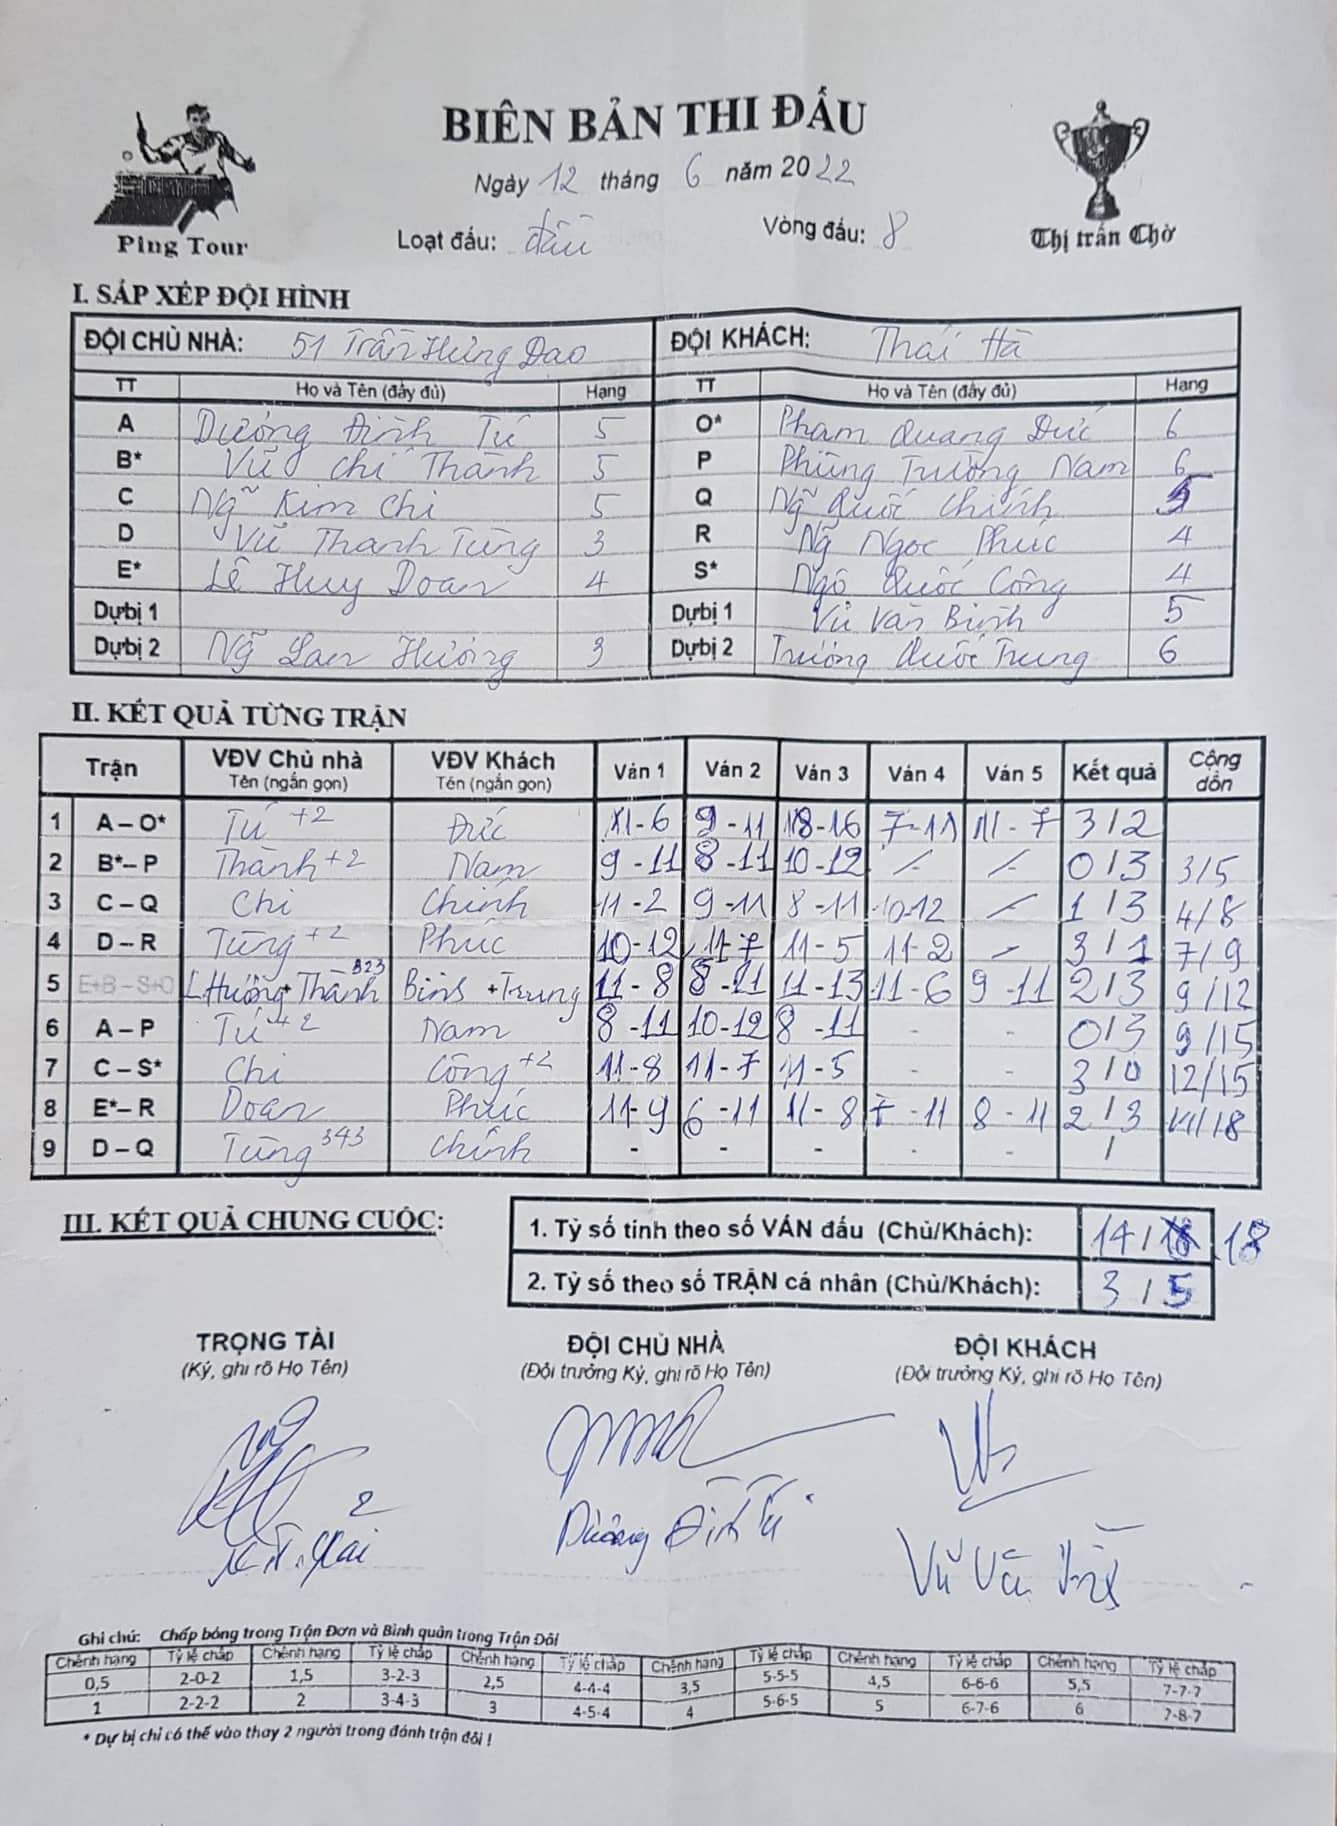 BIÊN BẢN THI ĐẤU
Ngày 12 tháng 6 năm 2022
Loạt đấu: đầu Vòng đấu: 8
Ping Tour
Thị trấn Chờ
I. SẮP XẾP ĐỘI HÌNH
ĐỘI CHỦ NHÀ: 51 Trần Hưng Đạo ĐỘI KHÁCH: Thái Hà
TT Họ và Tên (đầy đủ) Hạng TT Họ và Tên (đầy đủ) Hạng
A Dương Đình Tú 5 O* Phạm Quang Đức 6
B* Vũ Chí Thành 5 P Phùng Trường Nam 6
C Ng~ Kim Chi 5 Q Ng~ Quốc Chính 5
D Vũ Thanh Tùng 3 R Ng~ Ngọc Phúc 4
E* Lê Huy Doan 4 S* Ngô Quốc Công 4
Dự bị 1 Dự bị 1 Vũ Văn Bình 5
Dự bị 2 Ng~ Lan Hương 3 Dự bị 2 Trương Quốc Trung 6
II. KẾT QUẢ TỪNG TRẬN
Trận VĐV Chủ nhà Tên (ngắn gọn) VĐV Khách Tên (ngắn gọn) Ván 1 Ván 2 Ván 3 Ván 4 Ván 5 Kết quả Cộng dồn
1 A – O* Tú +2 Đức 11-6 9-11 18-16 7-11 11-7 3/2
2 B*– P Thành+2 Nam 9-11 8-11 10-12 - - 0/3 3/5
3 C – Q Chi Chính 11-2 9-11 8-11 10-12 - 1/3 4/8
4 D – R Tùng+2 Phúc 10-12 11-7 11-5 11-2 - 3/1 7/9
5 E+B – S+O L.Hương+Thành 323 Bình+Trung 11-8 8-11 11-13 11-6 9-11 2/3 9/12
6 A – P Tú+2 Nam 8-11 10-12 8-11 - - 0/3 9/15
7 C – S* Chi Công+2 11-8 11-7 11-5 - - 3/0 12/15
8 E*– R Doan Phúc 11-9 6-11 11-8 7-11 8-11 2/3 14/18
9 D – Q Tùng 343 Chính - - - - - /
III. KẾT QUẢ CHUNG CUỘC:
1. Tỷ số tính theo số VÁN đấu (Chủ/Khách): 14/18 18
2. Tỷ số theo số TRẬN cá nhân (Chủ/Khách): 3/5
TRỌNG TÀI ĐỘI CHỦ NHÀ ĐỘI KHÁCH
(Ký, ghi rõ Họ Tên) (Đội trưởng Ký, ghi rõ Họ Tên) (Đội trưởng Ký, ghi rõ Họ Tên)
Dương Đình Tú
Vũ Văn
Ghi chú: Chấp bóng trong Trận Đơn và Bình quân trong Trận Đôi
Chênh hạng Tỷ lệ chấp Chênh hạng Tỷ lệ chấp Chênh hạng Tỷ lệ chấp Chênh hạng Tỷ lệ chấp Chênh hạng Tỷ lệ chấp Chênh hạng Tỷ lệ chấp
0,5 2-0-2 1,5 3-2-3 2,5 4-4-4 3,5 5-5-5 4,5 6-6-6 5,5 7-7-7
1 2-2-2 2 3-4-3 3 4-5-4 4 5-6-5 5 6-7-6 6 7-8-7
* Dự bị chỉ có thể vào thay 2 người trong đánh trận đôi !